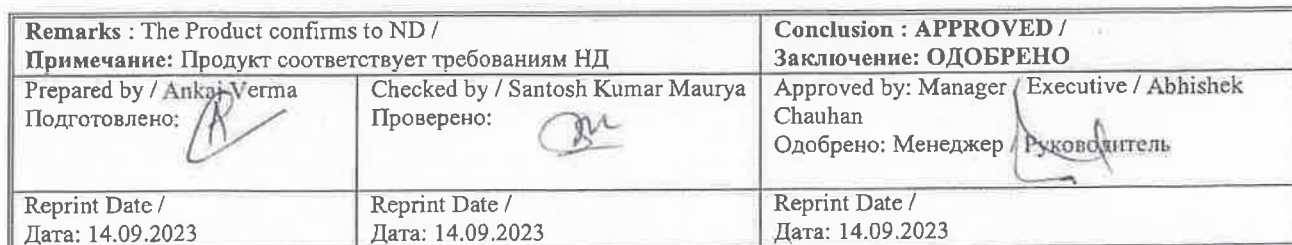 Remarks : The Product confirms to ND /
Примечание: Продукт соответствует требованиям НД
Conclusion : APPROVED /
Заключение: ОДОБРЕНО
Prepared by / Ankaj Verma
Подготовлено:
Checked by / Santosh Kumar Maurya
Проверено:
Approved by: Manager / Executive / Abhishek
Chauhan
Одобрено: Менеджер / Руководитель
Reprint Date /
Дата: 14.09.2023
Reprint Date /
Дата: 14.09.2023
Reprint Date /
Дата: 14.09.2023